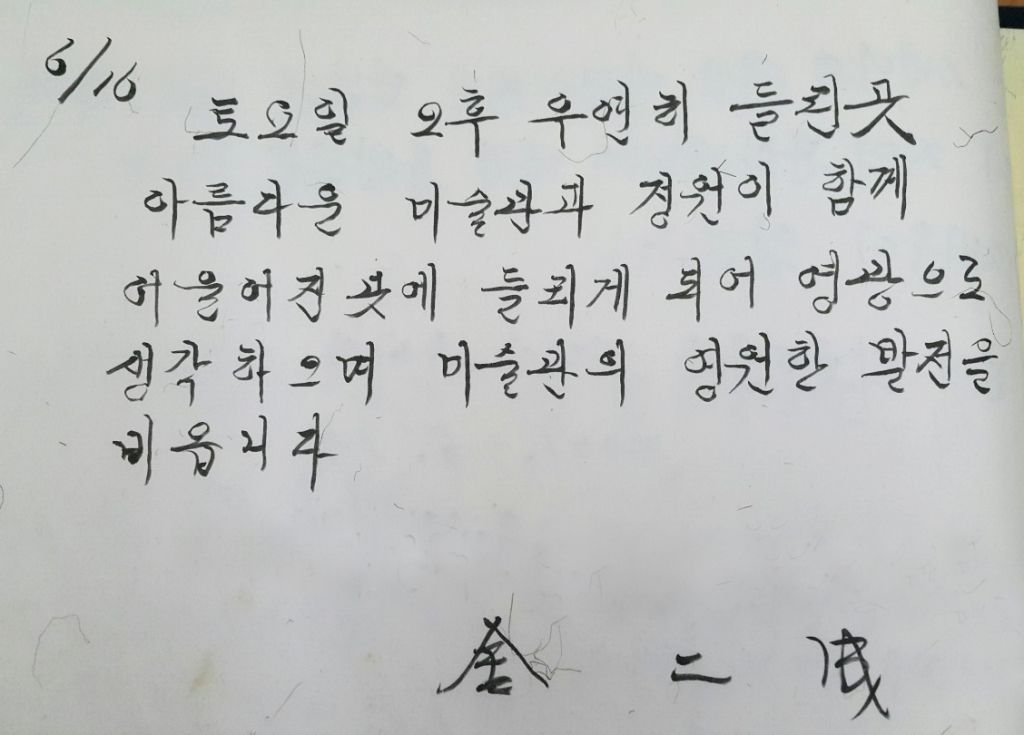 6/16
토요일 오후 우연히 들린곳
아름다운 미술관과 정원이 함께
어울어진 곳에 들리게 되어 영광으로
생각하으며 미술관의 영원한 발전을
비옵니다
金 二